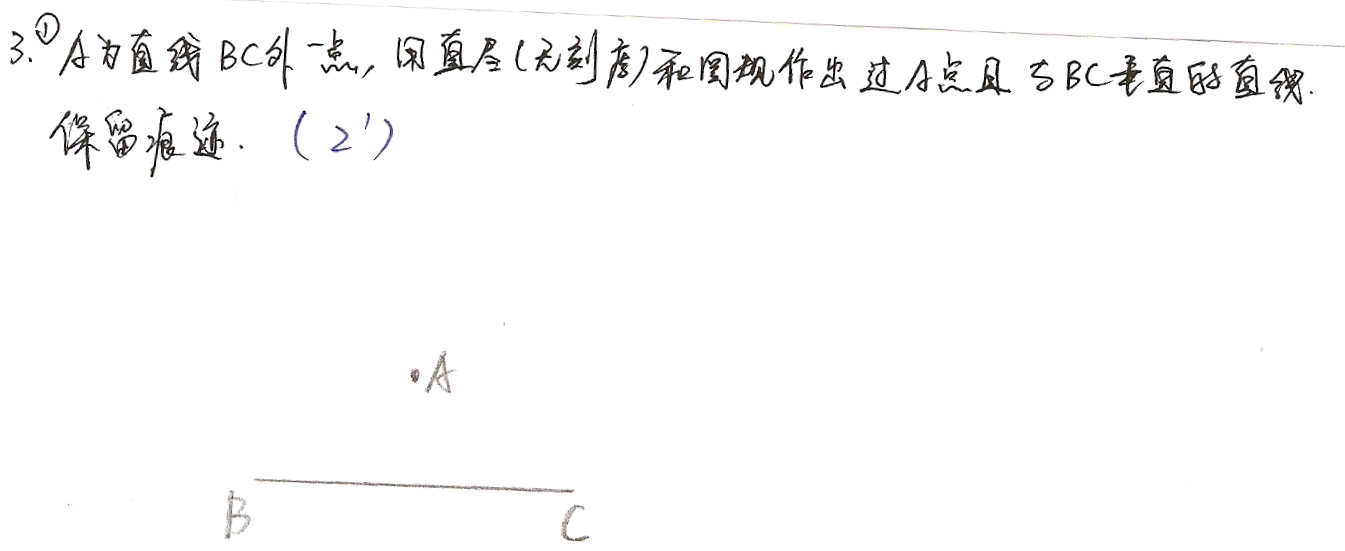 3.① A为直线BC外一点,用直尺(无刻度)和圆规作出过A点且与BC垂直的直线.
保留痕迹. (2')
A
B C